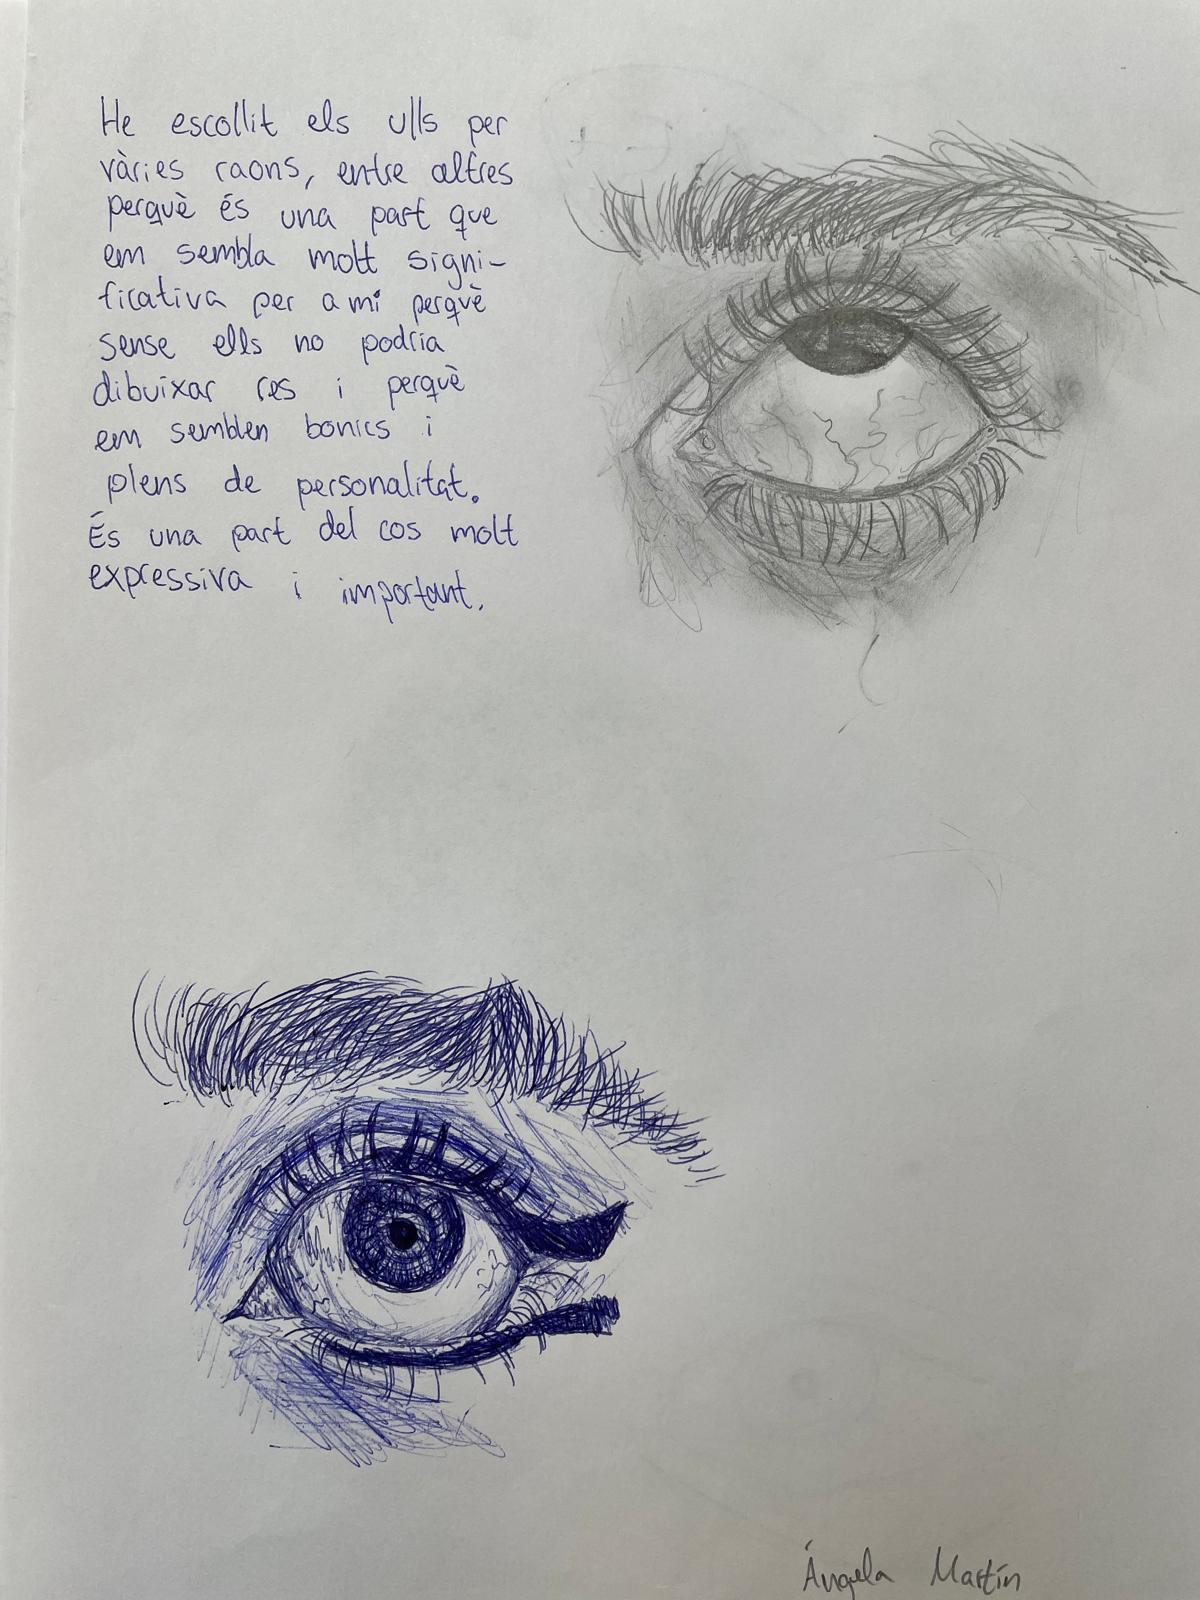 He escollit els ulls per
vàries raons, entre altres
perquè és una part que
em sembla molt signi-
ficativa per a mi perquè
sense ells no podria
dibuixar res i perquè
em semblen bonics i
plens de personalitat.
És una part del cos molt
expressiva i important.
Ángela Martín